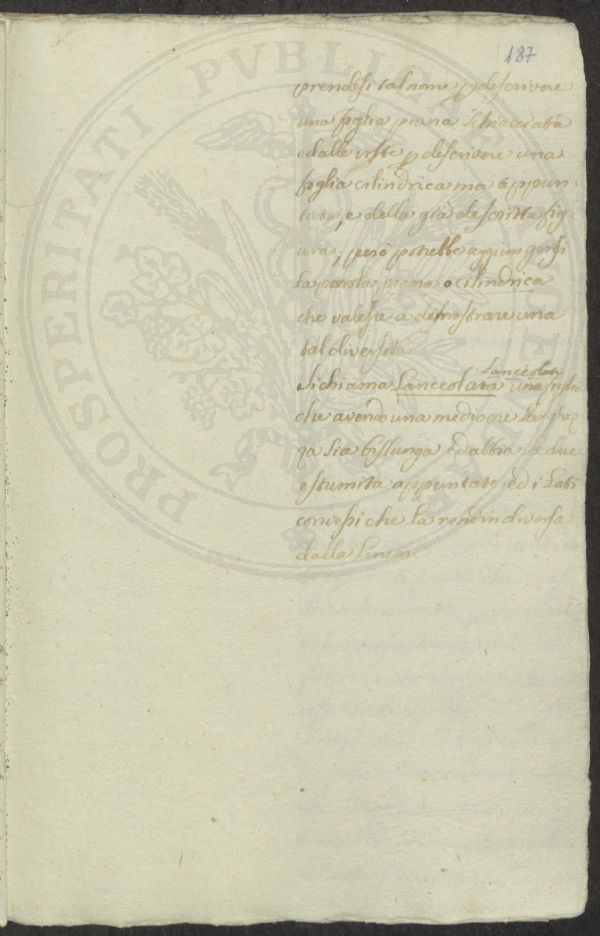 187
prendesi tal nome p descrivere
una foglia piana schiacciata
e dalle volte p descrivere una
foglia cilindrica ma appun-
tata, e della già descritta fig-
ura; però potrebbe aggiungersi
la parola piana o cilindrica
che valesse a demostrare una
tal diversità
Lanceolata
Si chiama Lanceolata una foglia
che avendo una mediocre larghez
za sia bislunga ed abbia le due
estumita appuntate ed i Lati
convessi che la rendin diversa
dalla Linear
PROSPERITATI PVBLICAE